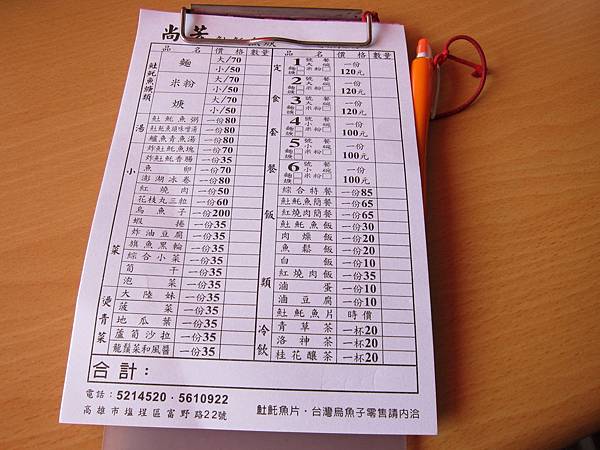 尚芳
品名 價格 數量 品名 價格 數量
魠魠魚焿類
麵 大/70
小/50
米粉 大/70
小/50
焿 大/70
小/50
湯
魠魠魚粥 一份80
魠魠魚頭味噌湯 一份80
鱸魚青魚湯 一份80
小菜
炸魠魠魚塊 一份70
炸魠魠香腸 一份35
魚卵 一份70
澎湖冰卷 一份80
紅燒肉 一份50
花枝丸三粒 一份60
烏魚子 一份200
蝦捲 一份35
炸油豆腐 一份35
旗魚黑輪 一份35
綜合小菜 一份35
筍干 一份35
泡菜 一份35
燙青菜
大陸妹 一份35
菠菜 一份35
地瓜葉 一份35
蘆筍沙拉 一份35
龍鬚菜和風醬 一份35
定食套餐
1號餐 大碗 麵 米粉 焿 一份120元
2號餐 大碗 麵 米粉 焿 一份120元
3號餐 大碗 麵 米粉 焿 一份120元
4號餐 小碗 麵 米粉 焿 一份100元
5號餐 小碗 麵 米粉 焿 一份100元
6號餐 小碗 麵 米粉 焿 一份100元
飯類
綜合特餐 一份85
魠魠魚簡餐 一份65
紅燒肉簡餐 一份65
魠魠魚飯 一份30
肉燥飯 一份20
魚鬆飯 一份20
白飯 一份10
紅燒肉飯 一份35
滷蛋 一份10
滷豆腐 一份10
魠魠魚片 時價
冷飲
青草茶 一杯20
洛神茶 一杯20
桂花釀茶 一杯20
合計：
電話：5214520・5610922
高雄市塩埕區富野路22號
魠魠魚片・台灣烏魚子零售請內洽